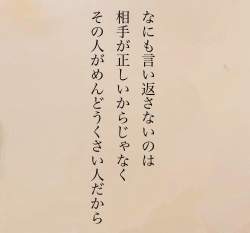 なにも言い返さないのは
相手が正しいからじゃなく
その人がめんどうくさい人だから